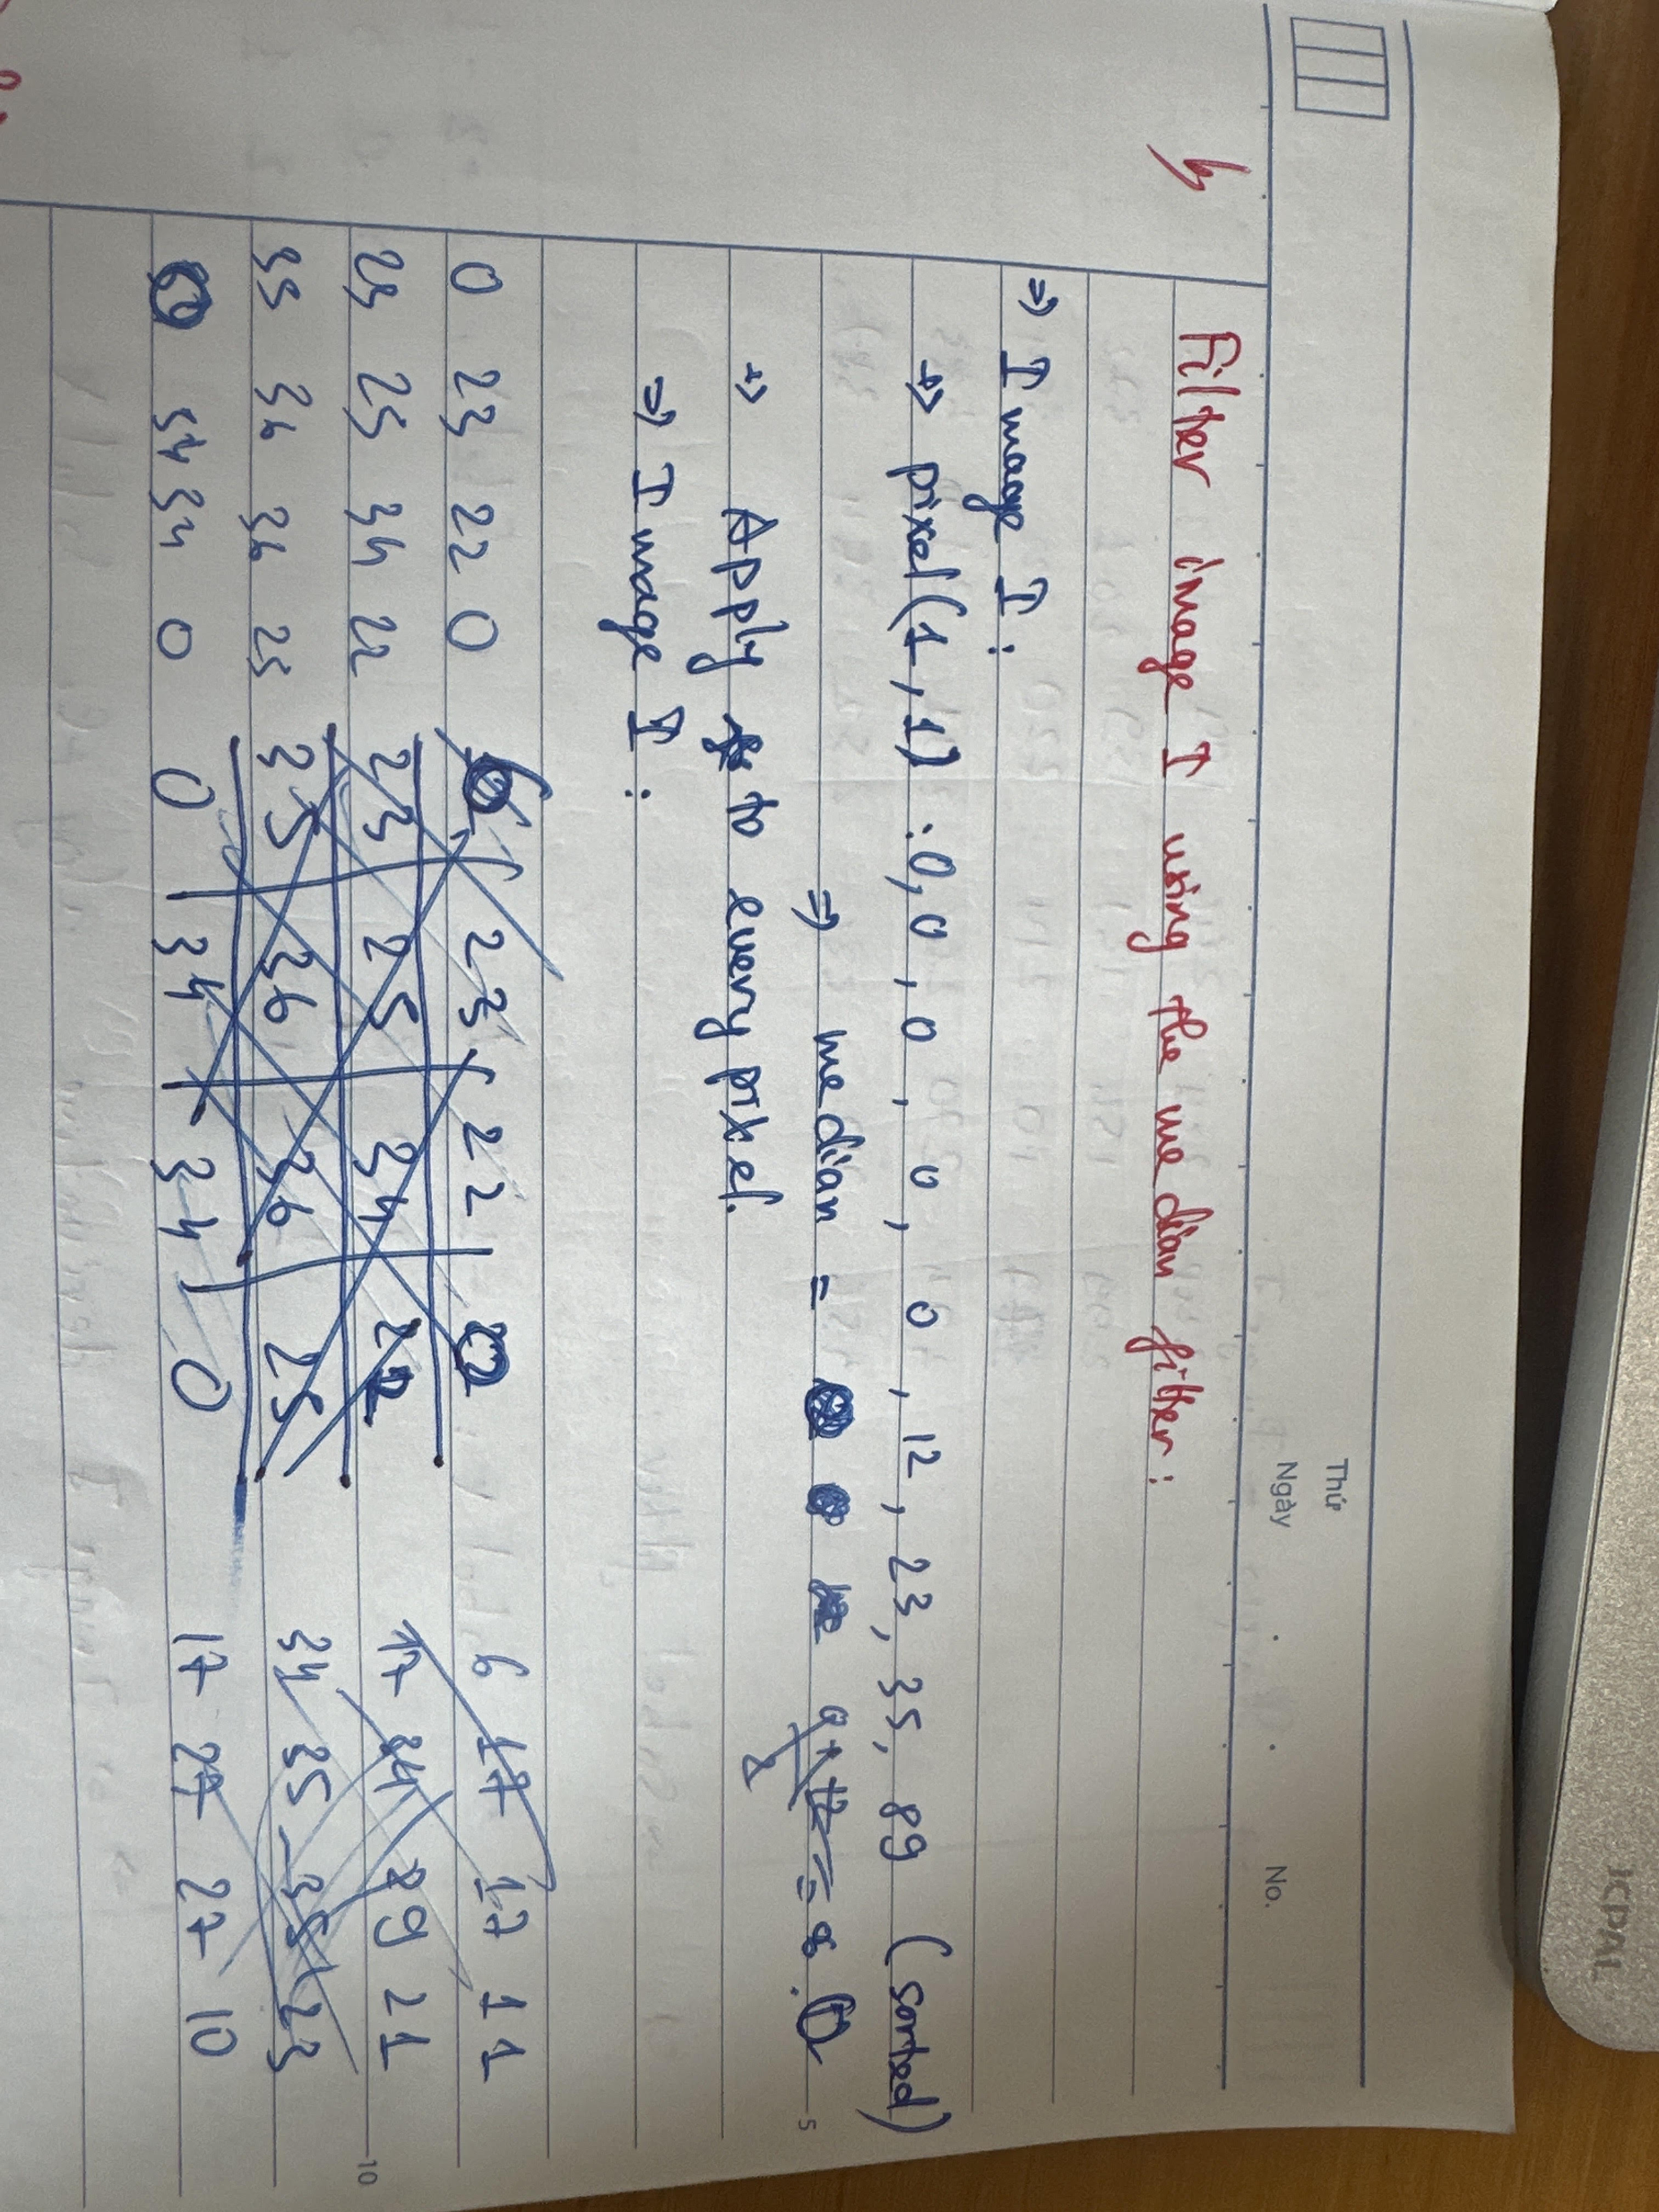 Thứ
Ngày
No.
b
Filter image I using the median filter:
=> Image I:
+> pixel(1,1) : 0, 0, 0, 0, 0, 12, 23, 35, 89 (sorted)
=> median = 0
5
+> Apply to every pixel.
=> Image I:
0 23 22 0 23 22 6 17 17 11
23 25 34 22 23 25 34 22 17 34 29 21
10
35 36 36 25 35 36 36 25 34 35 35 23
34 34 0 0 34 34 0 17 27 27 10